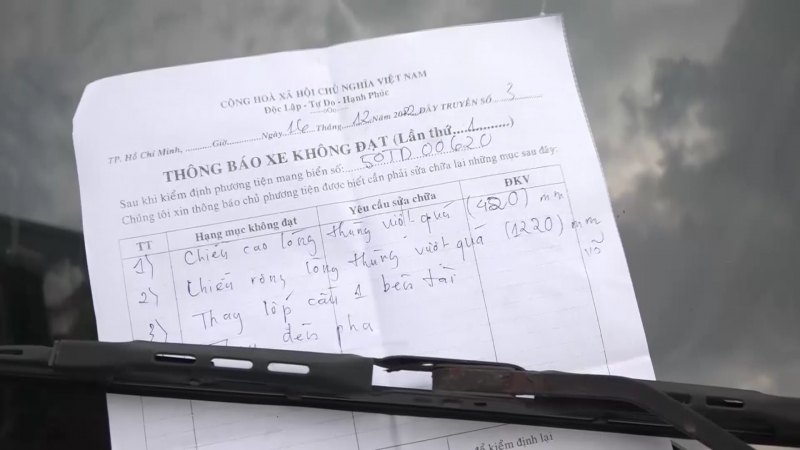 CỘNG HOÀ XÃ HỘI CHỦ NGHĨA VIỆT NAM
Độc Lập - Tự Do - Hạnh Phúc
TP. Hồ Chí Minh, ..........Giờ..........Ngày 16 Tháng 12 Năm 2022 DÂY TRUYỀN SỐ 3
THÔNG BÁO XE KHÔNG ĐẠT (Lần thứ....1..........)
Sau khi kiểm định phương tiện mang biển số: 50TD 00620
Chúng tôi xin thông báo chủ phương tiện được biết cần phải sửa chữa lại những mục sau đây:
TT Hạng mục không đạt Yêu cầu sửa chữa ĐKV
1) Chiều cao lòng thùng vượt quá (420) mm
2) Chiều rộng lòng thùng vượt quá (1220) mm
3) Thay lốp cầu 1 bên tài
đèn pha
để kiểm định lại